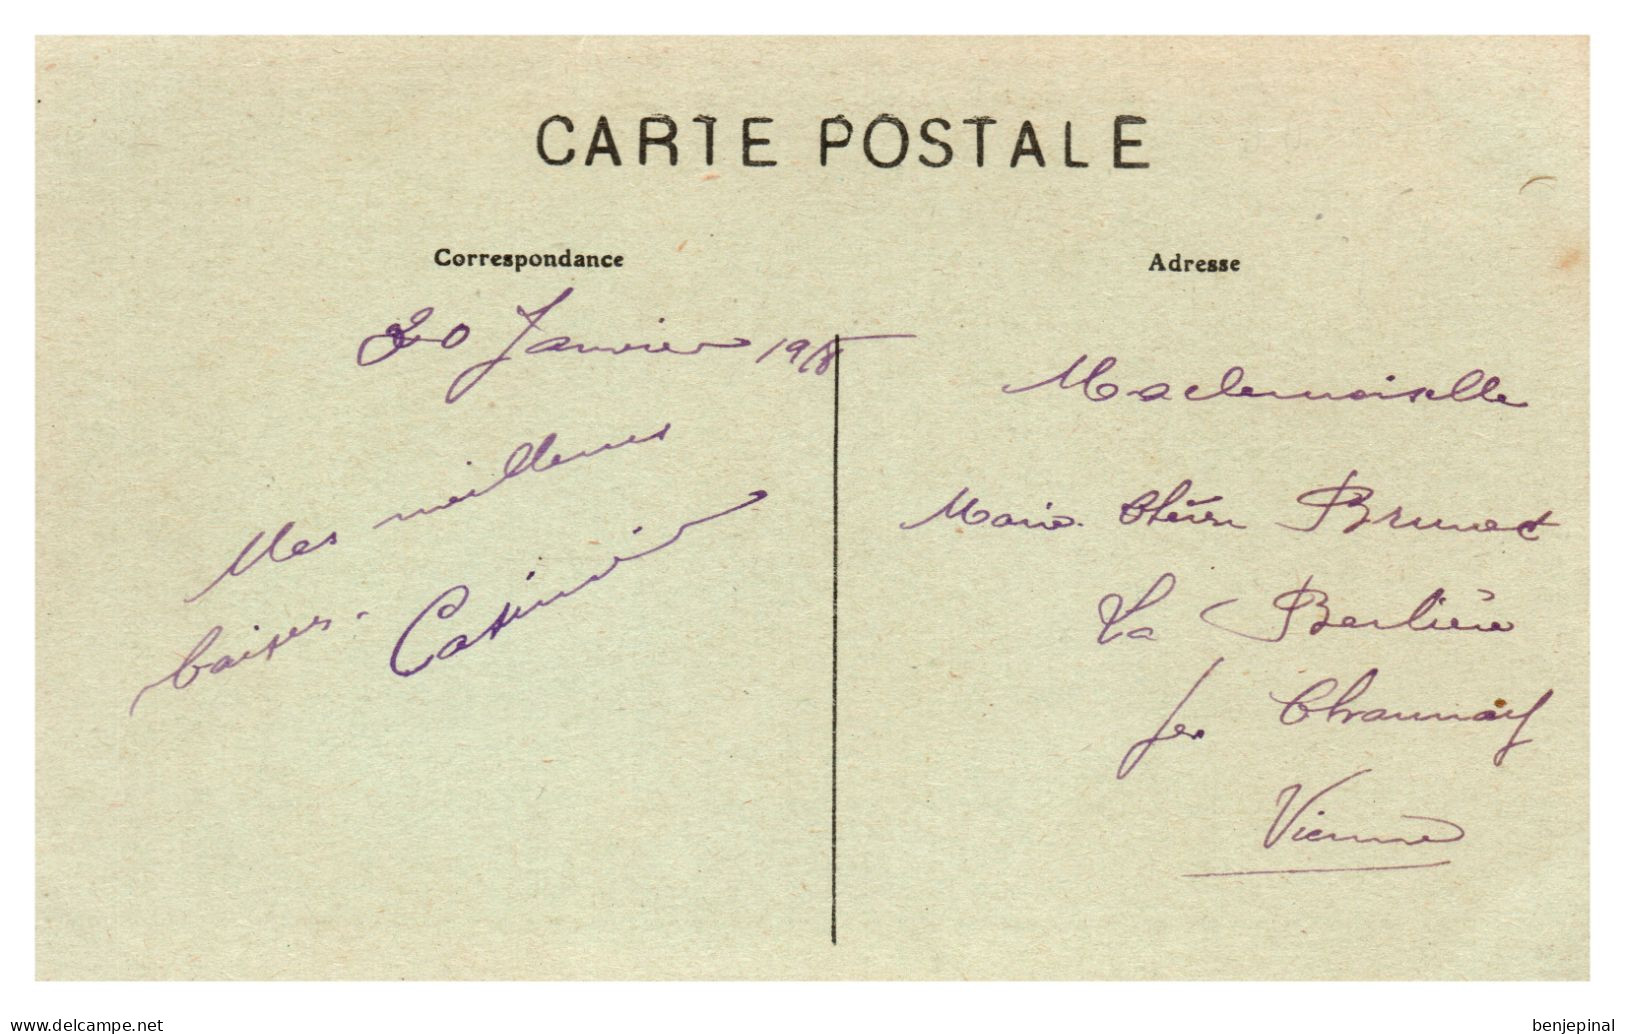 CARTE POSTALE
Correspondance
20 Janvier 1918
Mes meilleurs
baisers.
Casimir
Adresse
Mademoiselle
Marie Brunet
La Berlière
par Chaunay
Vienne
www.delcampe.net
benjepinal